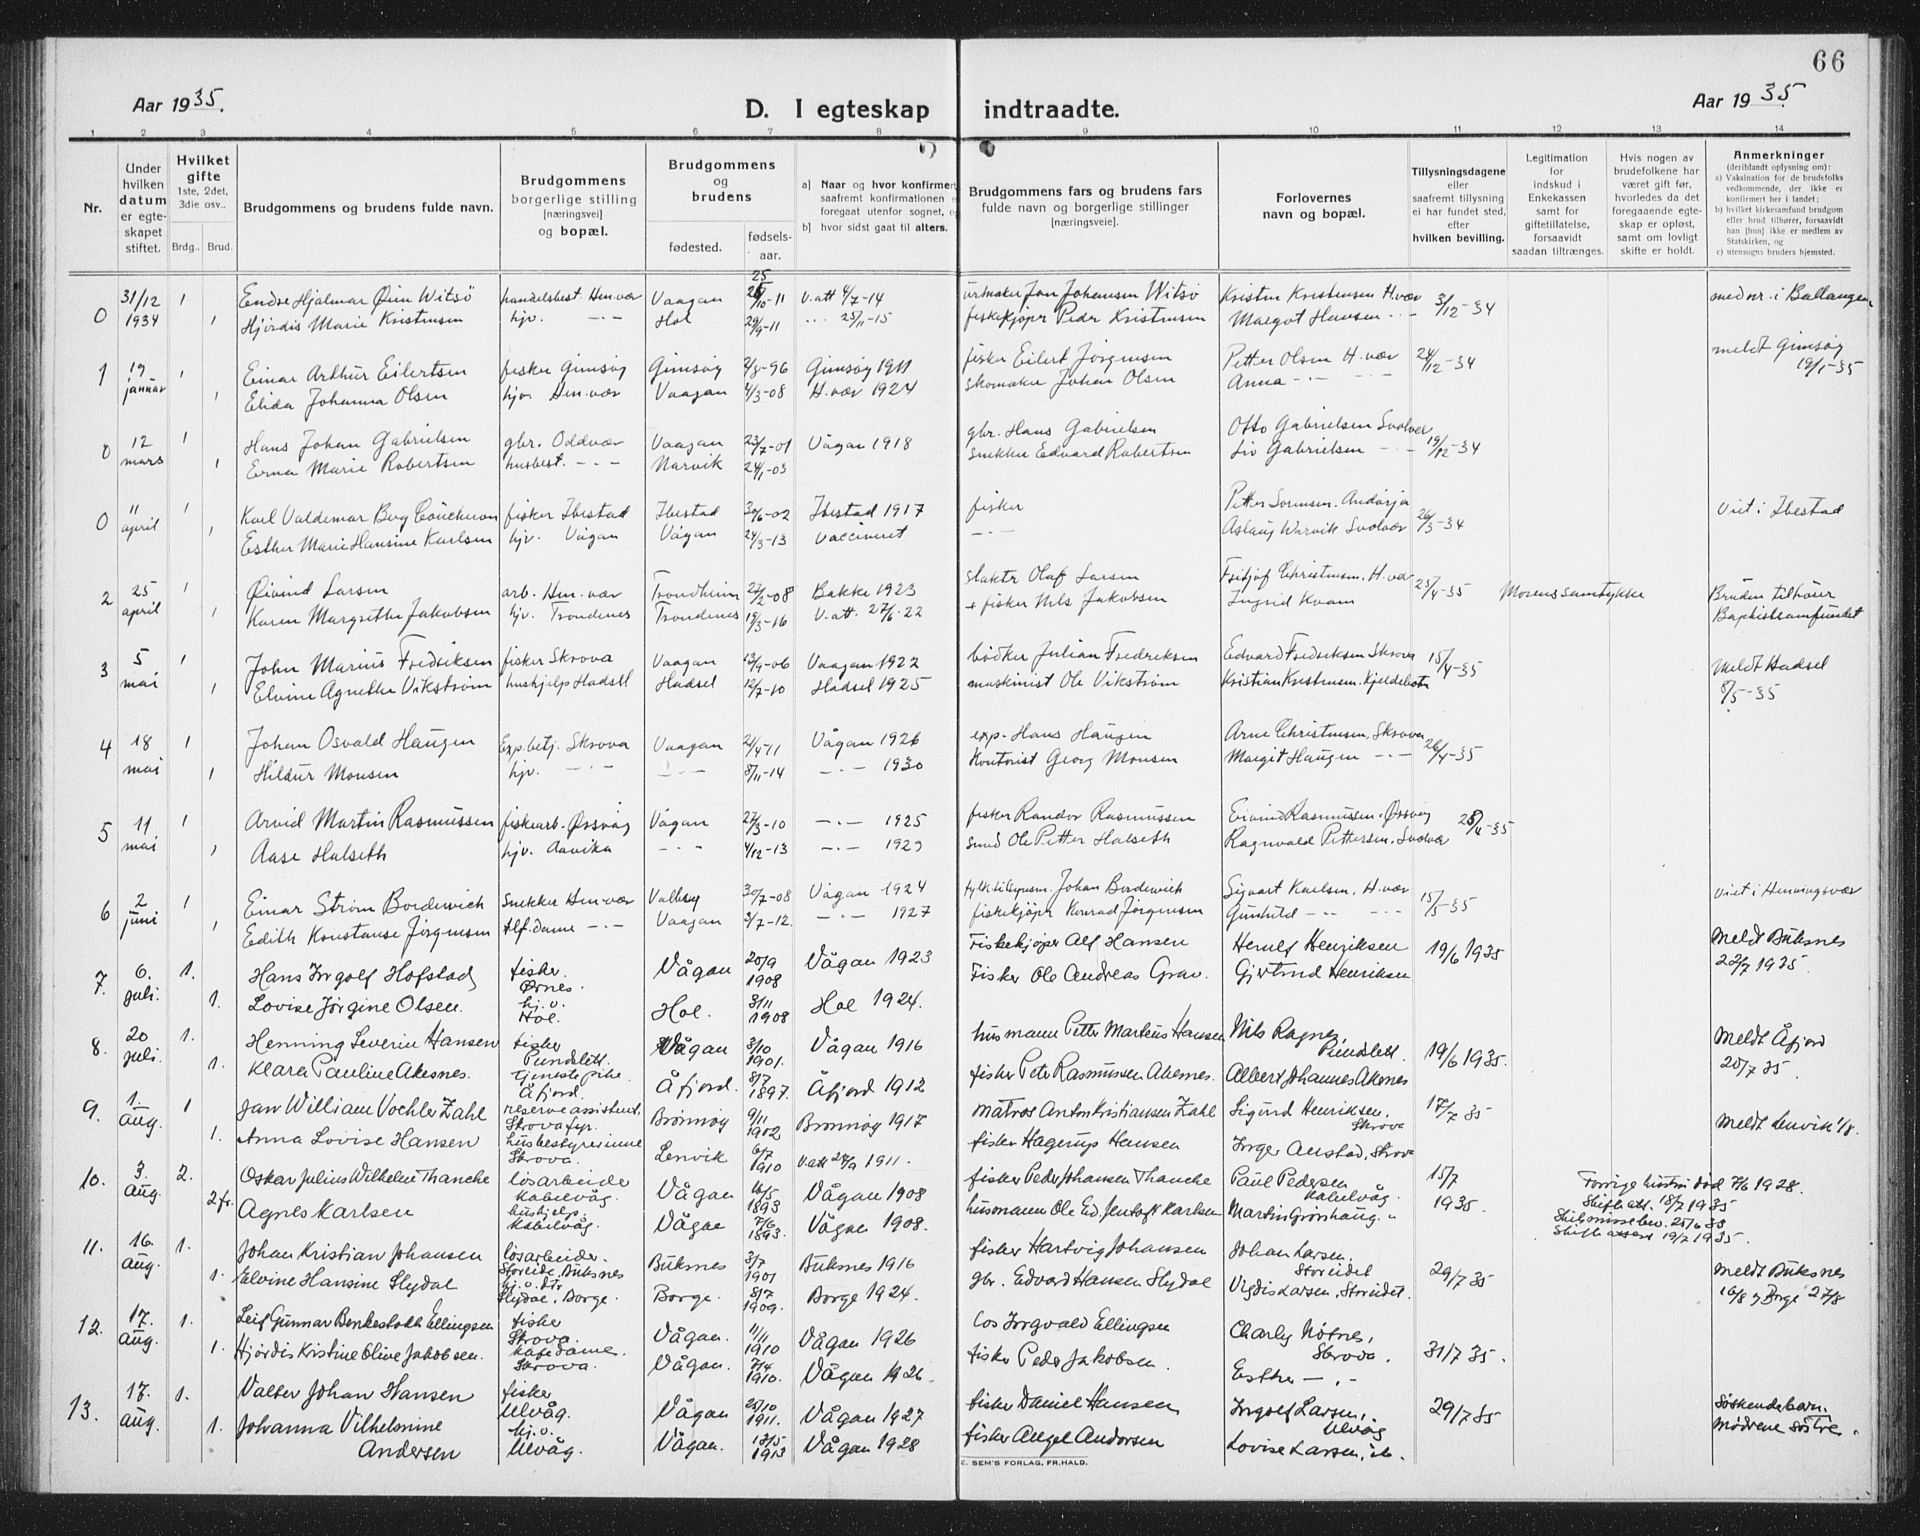 66
Aar 1935.
D. I egteskap indtraadte.
Aar 1935
1 2 3 4 5 6 7 8 9 10 11 12 13 14
Nr.
Under hvilken datum er egte-skapet stiftet.
Hvilket gifte 1ste, 2det, 3die osv..
Brdg.. Brud.
Brudgommens og brudens fulde navn.
Brudgommens borgerlige stilling [næringsvei] og bopæl.
Brudgommens og brudens
fødested. fødsels-aar.
a) Naar og hvor konfirmert saafremt konfirmationen er foregaat utenfor sognet,
b) hvor sidst gaat til alters.
Brudgommens fars og brudens fars fulde navn og borgerlige stillinger [næringsveie].
Forlovernes navn og bopæl.
Tillysningsdagene eller saafremt tillysning ei har fundet sted, efter hvilken bevilling.
Legitimation for indskud i Enkekassen samt for giftetillatelse, forsaavidt saadan tiltrænges.
Hvis nogen av brudefolkene har været gift før, hvorledes da det foregaaende egte-skap er opløst, samt om lovligt skifte er holdt.
Anmerkninger (deriblandt oplysning om):
a) Vaksination for de brudsfolks vedkommende, der ikke er konfirmert her i landet;
b) hvilket kirkesamfund brudgom eller brud tilhører, forsaavidt han [hun] ikke er medlem av Statskirken, og
c) utensogns bruders hjemsted.
0 31/12 1 Endre Hjalmar Øien Witsø handelsbest. Hen.vær Vaagan 25/10-11 V.att 4/7-14 urmaker Jon Johansen Witsø Kristen Kristensen H.vær 3/12-34 mednr. i Ballangen
1934 1 Hjørdis Marie Kristensen hjv. -·- Hol 29/9-11 -·- 25/11-15 fiskekjøper Peder Kristensen Margot Hansen -·-
1 19 januar 1 Einar Arthur Eilertsen fisker Gimsøy Gimsøy 2/8-96 Gimsøy 1911 fisker Eilert Jørgensen Petter Olsen H.vær 24/12-34 meldt Gimsøy 19/1-35
1 Elida Johanna Olsen hjv. Hen.vær Vaagan 4/3-08 H.vær 1924 skomaker Johan Olsen Anna -·-
0 12 mars 1 Hans Johan Gabrielsen gbr. Oddvær Vaagan 23/7-01 Vågan 1918 gbr. Hans Gabrielsen Otto Gabrielsen Svolvær 19/12-34
1 Erna Marie Robertsen husbest. -·- Narvik 24/1-03 snekker Edvard Robertsen Liv Gabrielsen -·-
0 11 april 1 Karl Valdemar Berg fisker Ibestad Ibestad 30/6-02 Ibestad 1917 fisker Petter Sørensen. Andørja 26/3-34 Viet i Ibestad
1 Esther Marie Hansine Karlsen hjv. Vågan Vågan 24/3-13 Vaccineret -·- Aslaug Warvik Svolvær
2 25 april 1 Øivind Larsen arb. Hen.vær Trondheim 27/2-08 Bakke 1923 slakter Olaf Larsen Fritjof Christensen. H.vær 25/4-35 Morens samtykke Bruden tilhører
1 Karen Margrethe Jakobsen hjv. Trondenes Trondenes 19/3-16 V.att. 27/6-22 + fisker Nils Jakobsen Ingrid Kvam Baptistsamfundet
3 5 mai 1 John Marius Fredriksen fisker Skrova Vaagan 13/9-06 Vaagan 1922 bødker Julian Fredriksen Edvard Fredriksen Skrova 15/4-35 Meldt Hadsel
1 Elvine Agnethe Vikstrøm hushjelp Hadsel Hadsel 12/7-10 Hadsel 1925 maskinist Ole Vikstrøm Kristian Kristensen. Kjeldebotn 8/5-35
4 18 mai 1 Johan Osvald Haugen Exp.betj. Skrova Vaagan 21/4-11 Vågan 1926 exp. Hans Haugen Arne Christensen, Skrova 26/4-35
1 Hildur Monsen hjv. -·- -·- 8/11-14 -·- 1930 Kontorist Georg Monsen Margit Haugen -·-
5 11 mai 1 Arvid Martin Rasmussen fiskearb. Ørsvåg Vågan 27/3-10 -·- 1925 fisker Randor Rasmussen Eivind Rasmussen. Ørsvåg 25/4-35
1 Aase Halseth hjv. Aavika -·- 4/12-13 -·- 1929 smed Ole Petter Halseth Ragnvald Pettersen. Svolvær
6 2 juni 1 Einar Strøm Bordewich snekker Hen.vær Valberg 30/7-08 Vågan 1924 Johan Bordewich Sigvart Karlsen, H.vær 15/5-35 Viet i Henningsvær
1 Edith Konstanse Jørgensen Tlf.dame -·- Vaagan 3/7-12 -·- 1927 fiskekjøper Konrad Jørgensen Gunhild -·-
7. 6. juli. 1. Hans Ingolf Hofstad fisker. Ørnes. Vågan 20/9 1908 Vågan 1923 Fiskekjøper Alf Hansen Herulf Henriksen 19/6 1935 Meldt Buksnes 22/7 1935.
1. Lovise Jørgine Olsen. hj.v. Hol. Hol. 3/11 1908 Hol 1924. Fisker Ole Andreas Grav. Gjertrud Henriksen
8. 20 juli. 1. Henning Severin Hansen fisker Pundslett. Vågan 3/10 1901. Vågan 1916 husmann Petter Martens Hansen Nils Ragnes, Pundslett. 19/6 1935. Meldt Åfjord
1. Klara Pauline Akesnes. tjenestepike. Åfjord. Åfjord. 8/7 1897. Åfjord 1912 fisker Peter Rasmussen Akernes. Albert Johannes Akenes 20/7 35.
9. 1. aug. 1 Jan William Vochler Zahl reserveassistent. Skrova fyr. Brønnøy 9/11 1902 Brønnøy 1917 matros Anton Kristiansen Zahl Sigurd Henriksen. Skrova 17/7 35 Meldt Lenvik 1/8.
1. Anna Lovise Hansen husbestyrerinne Skrova. Lenvik 6/7 1910 V.att 24/9 1911. fisker Hagerup Hansen Inger Anstad, Skrova
10. 3. aug. 2. Oskar Julius Wilhelm Thancke løsarbeide Kabelvåg. Vågan 16/5 1893 Vågan 1908 fisker Peder Johansen Thancke Paul Pedersen Kabelvåg. 15/7 1935. Forrige hustru død 7/6 1928. Skifteatt. 18/7 1935
2 fr. Agnes Karlsen hushjelp. Kabelvåg. Vågan 7/6 1893. Vågan 1908. husmann Ole Ed. Jentoft Karlsen Martin Grønhaug. " Skilsmissebev. 25/6 33 Skifteattest 19/7 1935.
11. 16. aug. 1. Johan Kristian Johansen løsarbeider. Storeide, Buksnes Buksnes 3/7 1901 Buksnes 1916 fisker Hartvig Johansen Johan Larsen. Storeidet 29/7 35 Meldt Buksnes
1. Elvine Hansine Slydal hj.v. dtr Slydal, Borge. Borge. 8/7 1909. Borge 1924. gbr. Edvard Hansen Slydal Vigdis Larsen, Storeidet. 16/8 og Borge 27/8
12. 17. aug. 1. Leif Gunnar Benkestokk Ellingsen fisker Skrova. Vågan. 11/11 1910 Vågan 1926 Los Ingvald Ellingsen Charly Nøtnes, Skrova. 31/7 35.
1. Hjørdis Kristine Olive Jakobsen. kafedame. Skrova. Vågan. 7/4 1910. Vågan 1926. fisker Peder Jakobsen. Esther -·-
13. 17. aug. 1. Valter Johan Hansen fisker Ulvåg. Vågan 25/10 1911. Vågan 1927 fisker Daniel Hansen Ingolf Larsen, Ulvåg 29/7 35 Søskendebarn.
1. Johanna Vilhelmine Andersen hj.v. Ulvåg. Vågan. 18/5 1913 Vågan 1928 fisker Angel Andorsen Lovise Larsen, ib. mødrene søstre.
E. SEM'S FORLAG, FR.HALD.